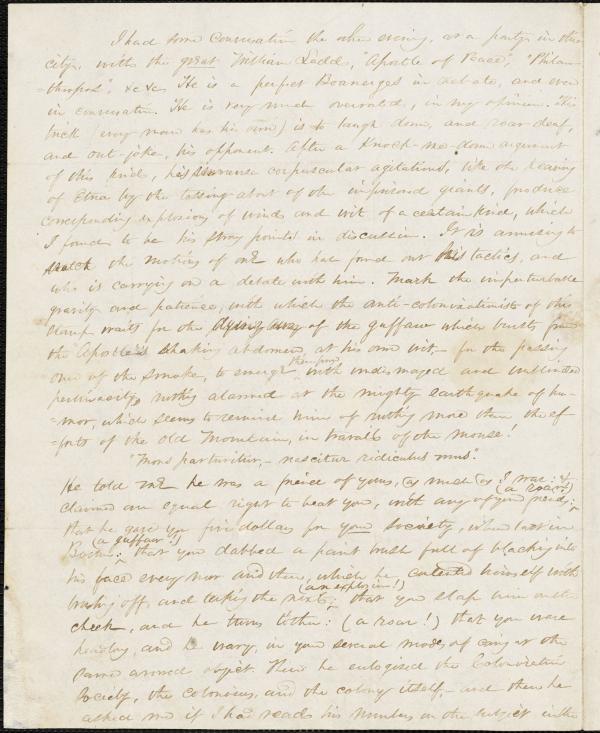 I had some conversation the other evening, at a party in this
city, with the great William Ladd, "Apostle of Peace," "Philan-
=thropos", &c &c. He is a perfect Boanerges in debate, and even
in conversation. He is very much overrated, in my opinion. His
trick (every man has his own) is to laugh down, and roar deaf,
and out-joke, his opponent. After a knock-me-down argument
of this kind, his immense corpuscular agitations, like the heaving
of Etna by the tossing about of the imprisoned giants, produce
corresponding explosions of wind and wit of a certain kind, which
I found to be his strong points in discussion. It is amusing to
watch the motions of one who has found out his tactics, and
who is carrying on a debate with him. Mark the imperturbable
gravity and patience, with which the anti-colonizationist of the
stamp waits for the dying away of the guffaw which bursts from
the Apostle's shaking abdomen, at his own wit,— for the passing
over of the smoke, to emerge therefrom with undismayed and unblinded
perspicacity, nothing alarmed at the mighty earthquake of hu-
=mor, which seems to remind him of nothing more than the ef-
=forts of the old Mountain, in travail of the mouse!
"Mons parturitur,— nascitur ridiculus mus."
He told me he was a friend of yours, as much as I was: &
claimed an equal right to beat you, with any of your friends; (a roar!)
that he gave you five dollars for your society, when last in
Boston; (a guffaw!) that you dabbed a paint brush full of blacking into
his face every now and then, which he contented himself with
brushing off, and taking the next; (an explosion!) that you slap him on the
cheek, and he turns t'other: (a roar!) that you were
headlong, and he wary, in your several modes of caring at the
same armed object. Then he eulogised the Colonization
Society, the colonies, and the colony itself,— and then he
asked me if I had read his numbers on the subject in the